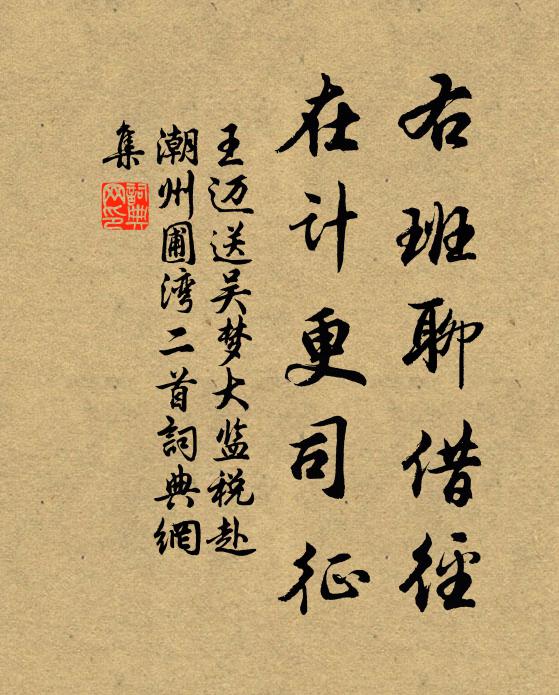 右班聊借径
在计更司征
王迈送吴梦大监税赴
潮州圃湾二首詞典網
集
詞典
网印